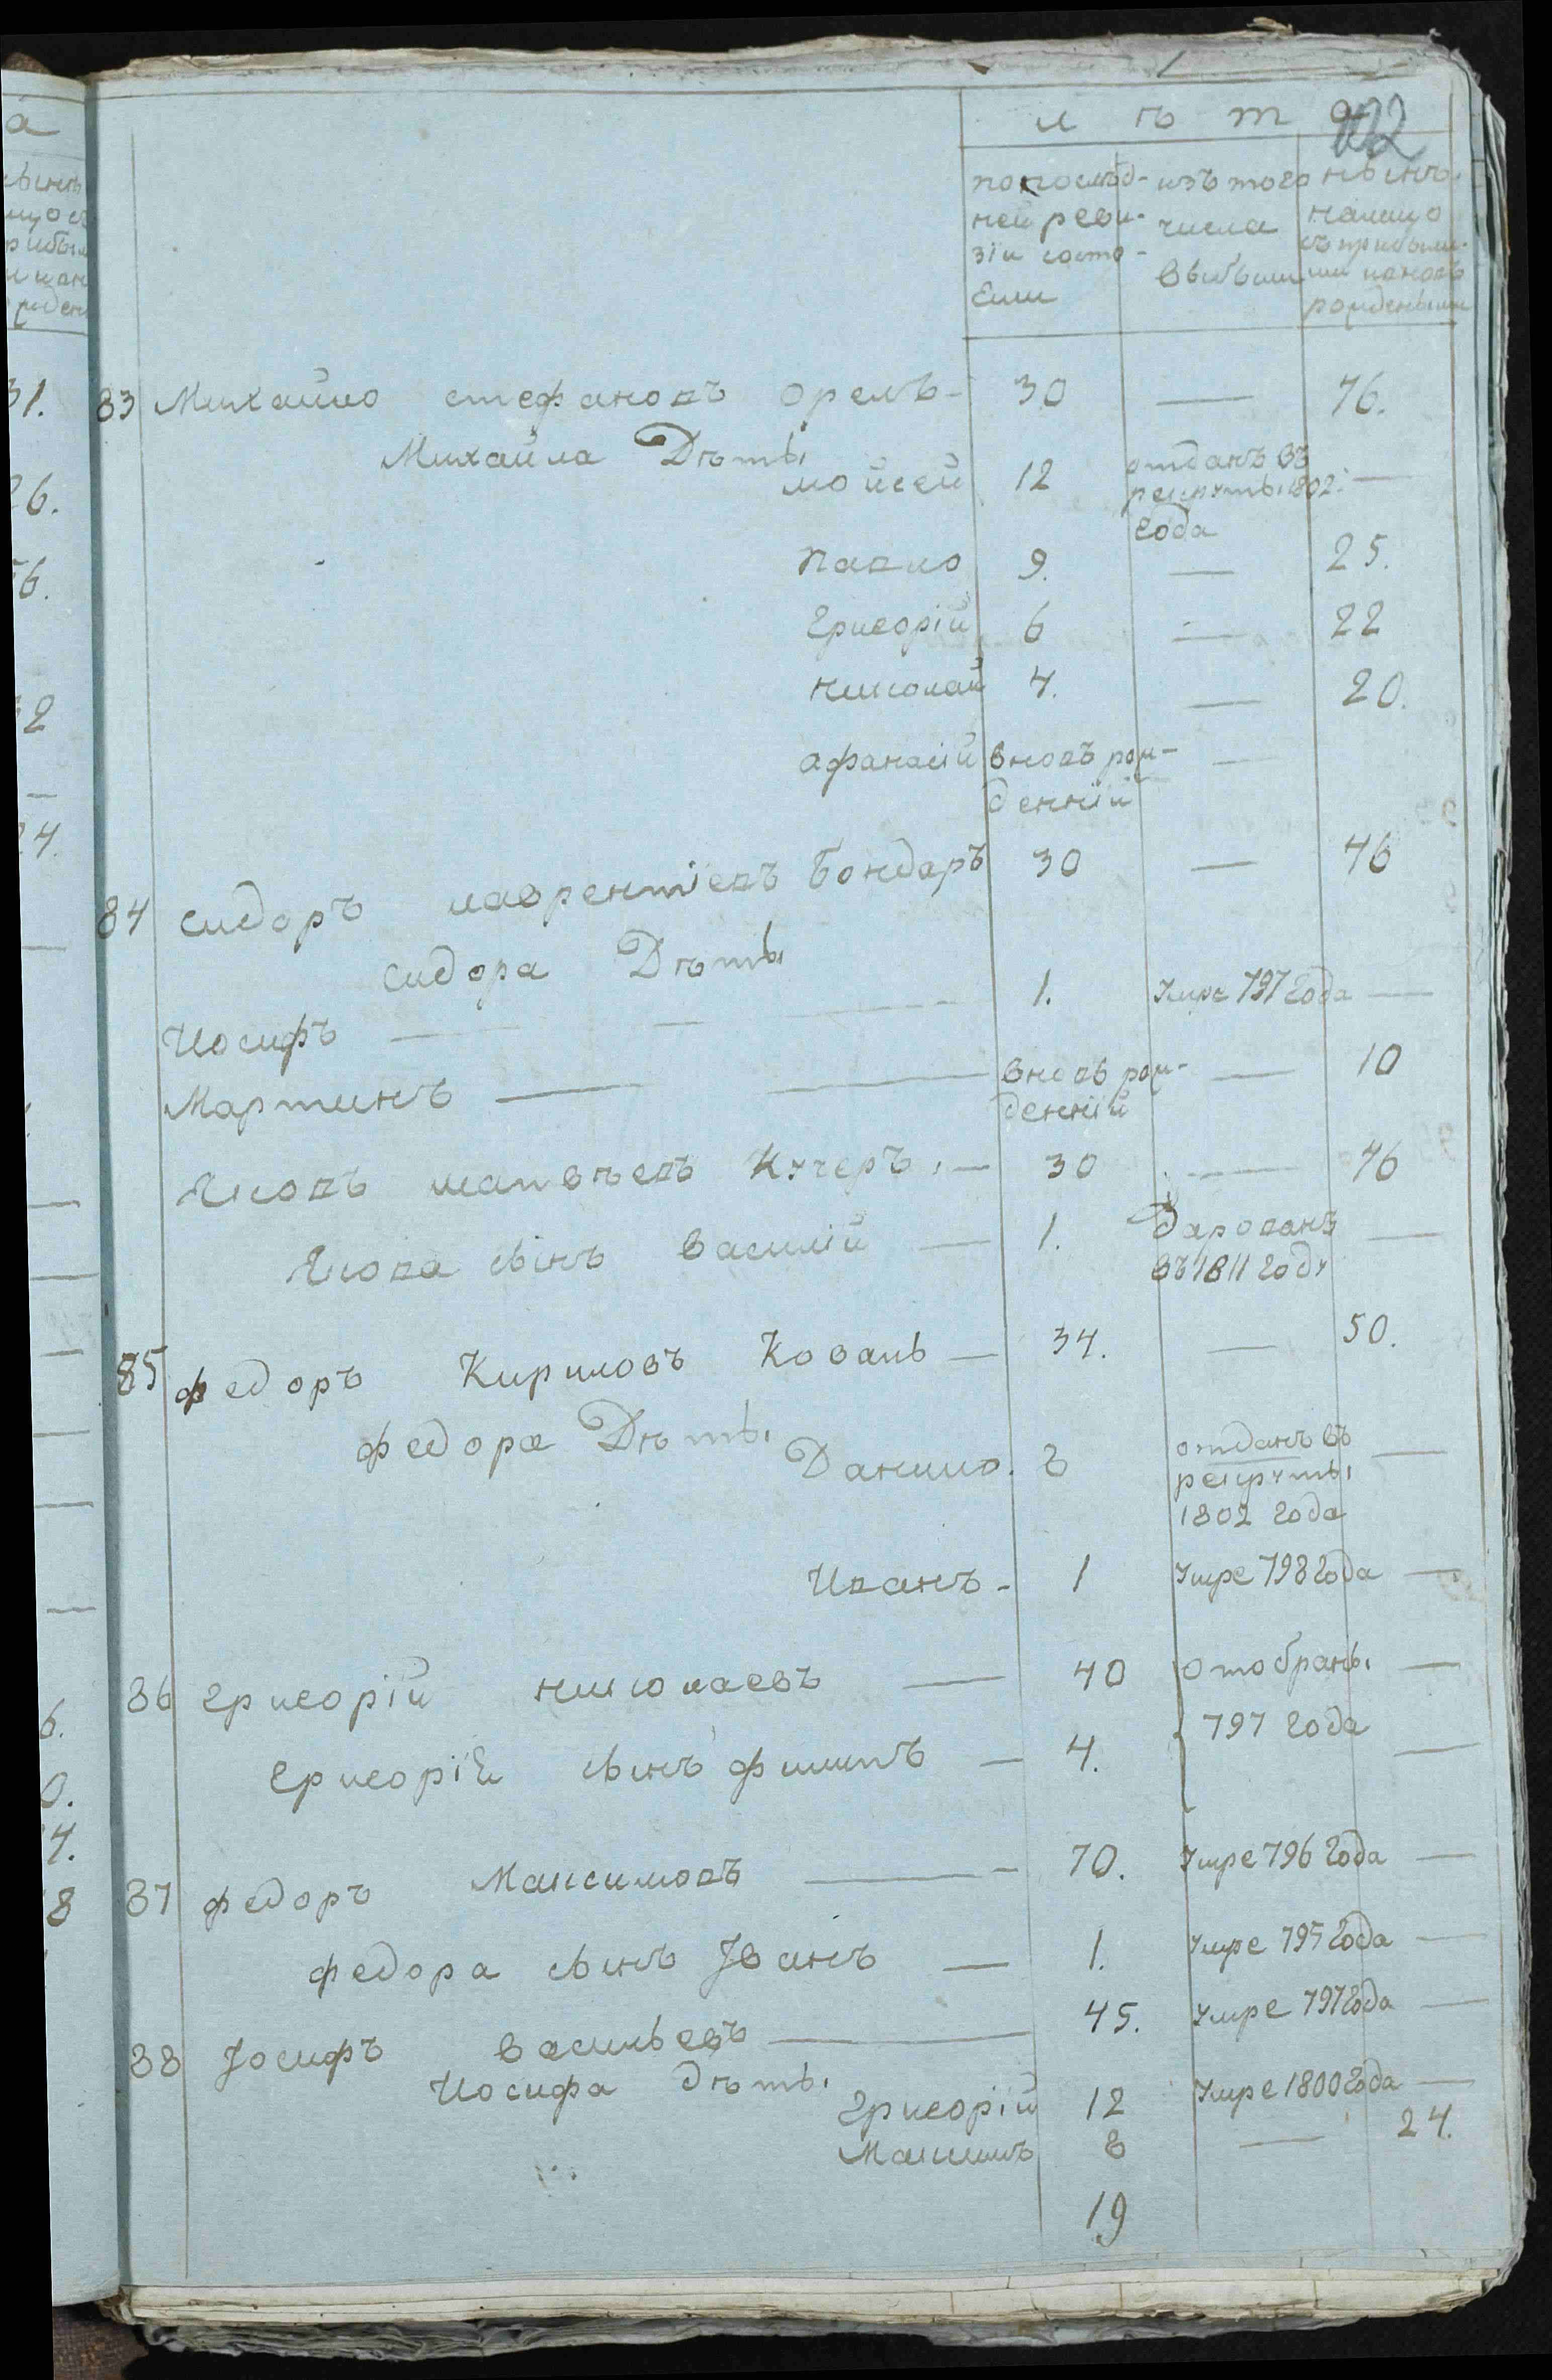 лѣта
122
по послѣд-
ней реви-
зіи состо-
яли
изъ того
числа
выбыли
нынѣ
налицо
съ прибыли-
ми и новъ
рожденными
83 Михайло стефановъ орелъ - 30 — 46.
Михайла Дѣты
мойсей 12 отданъ въ рекруты 1802: года —
павло 9. — 25.
григорій 6 — 22
николай 4. — 20.
афанасій вновъ рож-
денній —
84 сидоръ лаврентіевъ бондаръ 30 — 46
сидора Дѣты
Иосифъ — 1. умре 797 года —
Мартинъ — вновъ рож- — 10
денній
Яковъ матвѣевъ Кучеръ. — 30 — 46
Якова сынъ василій — 1. Дарованъ —
въ 1811 году
85 федоръ Кириловъ Коваль — 34. — 50.
федора Дѣты
Данило. 2 отданъ въ —
рекруты
1802 года
Иванъ - 1 умре 798 года —
86 григорій николаевъ — 40 отобраны —
797 года
григорія сынъ филипъ — 4. —
87 федоръ Максимовъ — 70. умре 796 года —
федора сынъ Іванъ — 1. умре 795 года —
88 Іосифъ васильевъ — 45. умре 797 года —
Иосифа дѣты
григорій 12 умре 1800 года —
Максимъ 8 — 24.
19